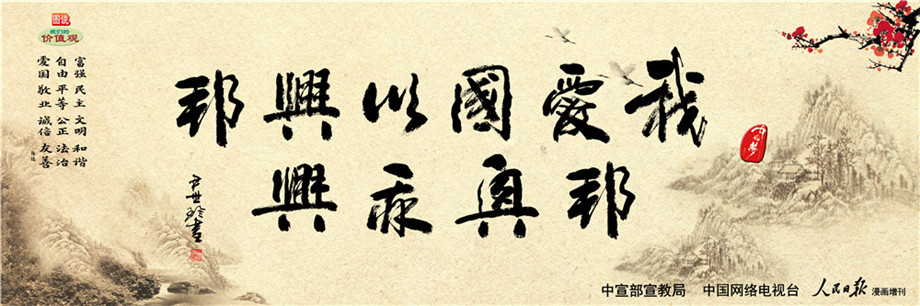 图说
我们的
价值观
富强 民主 文明 和谐
自由 平等 公正 法治
爱国 敬业 诚信 友善
我愛國以興邦
邦興
中宣部宣教局
中国网络电视台
人民日报 漫画增刊